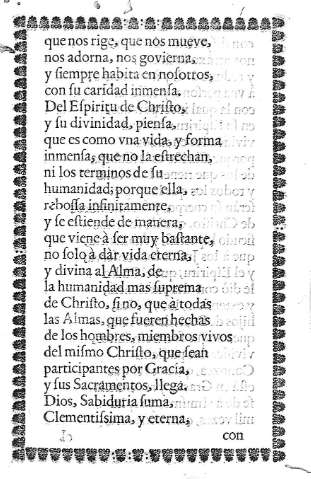 que nos rige, que nos mueve,
nos adorna, nos govierna,
y ſiempre habita en noſotros,
con ſu caridad inmenſa.
Del Eſpiritu de Chriſto,
y ſu divinidad, pienſa,
que es como vna vida, y forma
inmenſa, que no la eſtrechan,
ni los terminos de ſu
humanidad; porque ella,
reboſſa infinitamente,
y ſe eſtiende de manera,
que viene à ſer muy baſtante,
no ſolo à dàr vida eterna,
y divina al Alma, de
la humanidad mas suprema
de Chriſto, ſi no, que à todas
las Almas, que fueren hechas
de los hombres, miembros vivos
del miſmo Chriſto, que ſean
participantes por Gracia,
y ſus Sacramentos, llega.
Dios, Sabiduria ſuma,
Clementiſsima, y eterna,
con